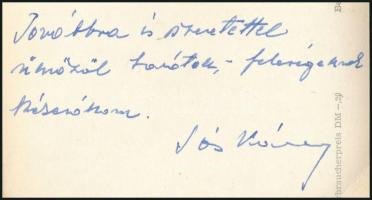 Továbbra is szeretettel
üdvözöl barátod, - feleségednek
kézcsókom.
Sós
rbraucherpreis DM -,50